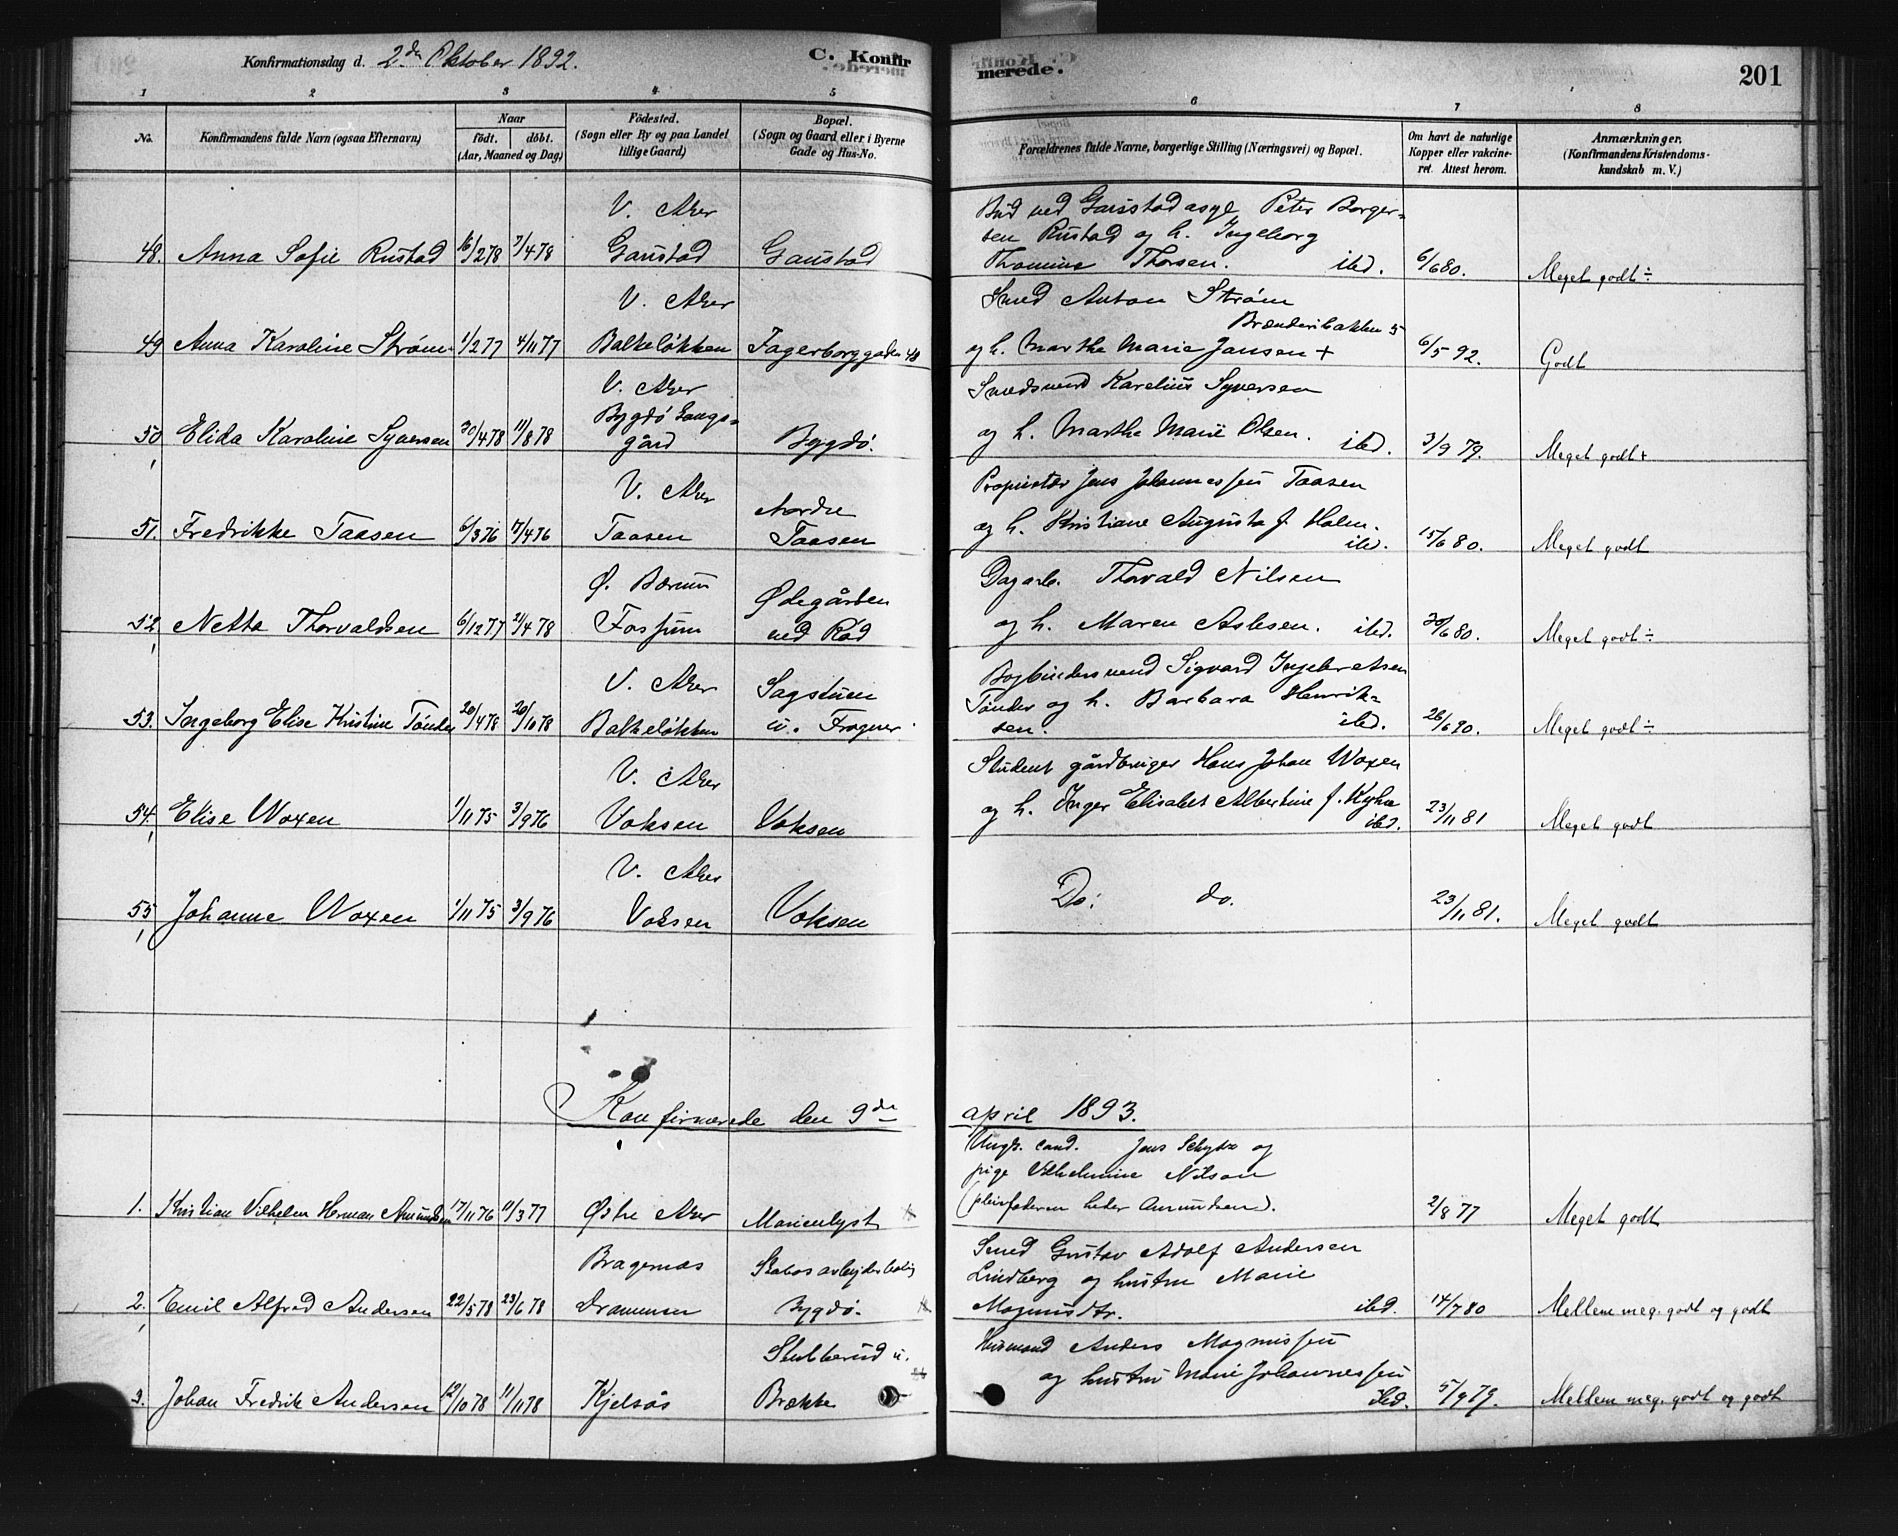 Konfirmationsdag d. 2den Oktober 1892.
C. Konfirmerede.
201
1 2 3 4 5 6 7 8
No.
Konfirmandens fulde Navn (ogsaa Efternavn)
Naar
født. døbt.
(Aar, Maaned og Dag)
Fødested.
(Sogn eller By og paa Landet
tillige Gaard)
Bopæl.
(Sogn og Gaard eller i Byerne
Gade og Hus-No.
Forældrenes fulde Navne, borgerlige Stilling (Næringsvei) og Bopæl.
Om havt de naturlige
Kopper eller vakcine-
ret. Attest herom.
Anmærkninger.
(Konfirmandens Kristendoms-
kundskab m. V.)
V. Aker
Bud ved Gaustad asyl Peter Borger-
sen Rustad og h. Ingeborg
48. Anna Sofie Rustad 16/2 78 7/4 78 Gaustad Gaustad Thomine Thorsen. ibd. 6/6 80. Meget godt ÷
V. Aker
Smed Anton Strøm
49 Anna Karoline Strøm 1/2 77 4/11 77 Balkeløkken Fagerborggaden 48 og h. Marthe Marie Jansen + 6/5 92. Godt
V. Aker
Smedsvend Karelius Syversen
Bygdø Kongs-
50 Elida Karoline Syversen 30/4 78 11/8 78 gård Bygdø. og h. Marthe Marie Olsen. ibd. 3/9 79. Meget godt +
V. Aker
Nordre
Proprietær Jens Johannessen Taasen
51. Fredrikke Taasen 6/3 76 17/4 76 Taasen Taasen og h. Kristiane Augusta f. Holm. ibd. 15/6 80. Meget godt
Ø. Bærum
Ødegården
Dagarb. Thorvald Nilsen
52, Netta Thorvaldsen 6/12 77 21/4 78 Fossum ved Rød og h. Maren Aslesen. ibd. 30/6 80. Meget godt ÷
V. Aker
Sagstuen
Bogbindersvend Sigvard Ingebretsen
Tønder og h. Barbara Henrik-
53. Ingeborg Elise Kristine Tønder 20/4 78 20/10 78 Balkeløkken u. Frogner. sen. ibd. Meget godt ÷
V. Aker
Student gårdbruger Hans Johan Woxen
54, Elise Woxen 1/11 75 3/9 76 Voksen Voksen og h. Inger Elisabet Albertine f. ibd. 23/11 81 Meget godt
V. Aker
55, Johanne Woxen 1/11 75 3/9 76 Voksen Voksen Do: do. 23/11 81. Meget godt
Konfirmerede den 9de april 1893.
cand. Jens og
pige Vilhelmine Nilson
1. Kristian Vilhelm Herman Amundsen 17/11 76 11/3 77 Østre Aker Marienlyst (pleiefaderen heder Amundsen). 2/8 77 Meget godt
Bragernæs
Smed Gustav Adolf Andersen
Lindberg og hustru Marie
2. Emil Alfred Andersen 22/5 78 23/6 78 Drammen Bygdø. Magnusdtr. ibd. 14/7 80 Mellem meg. godt og godt
Stubberud u.
Husmand Anders Magnussen
og hustru Marie Johannessen
3. Johan Fredrik Andersen 12/10 78 11/11 78 Kjelsås Brække ibd. 5/9 79. Mellem meg. godt og godt